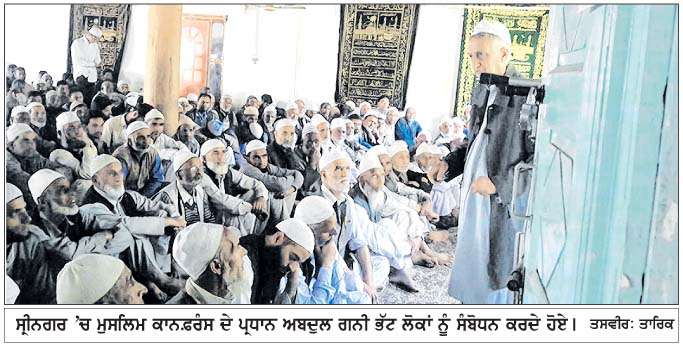 ਸ੍ਰੀਨਗਰ 'ਚ ਮੁਸਲਿਮ ਕਾਨਫ਼ਰੰਸ ਦੇ ਪ੍ਰਧਾਨ ਅਬਦੁਲ ਗਨੀ ਭੱਟ ਲੋਕਾਂ ਨੂੰ ਸੰਬੋਧਨ ਕਰਦੇ ਹੋਏ। ਤਸਵੀਰ: ਤਾਰਿਕ